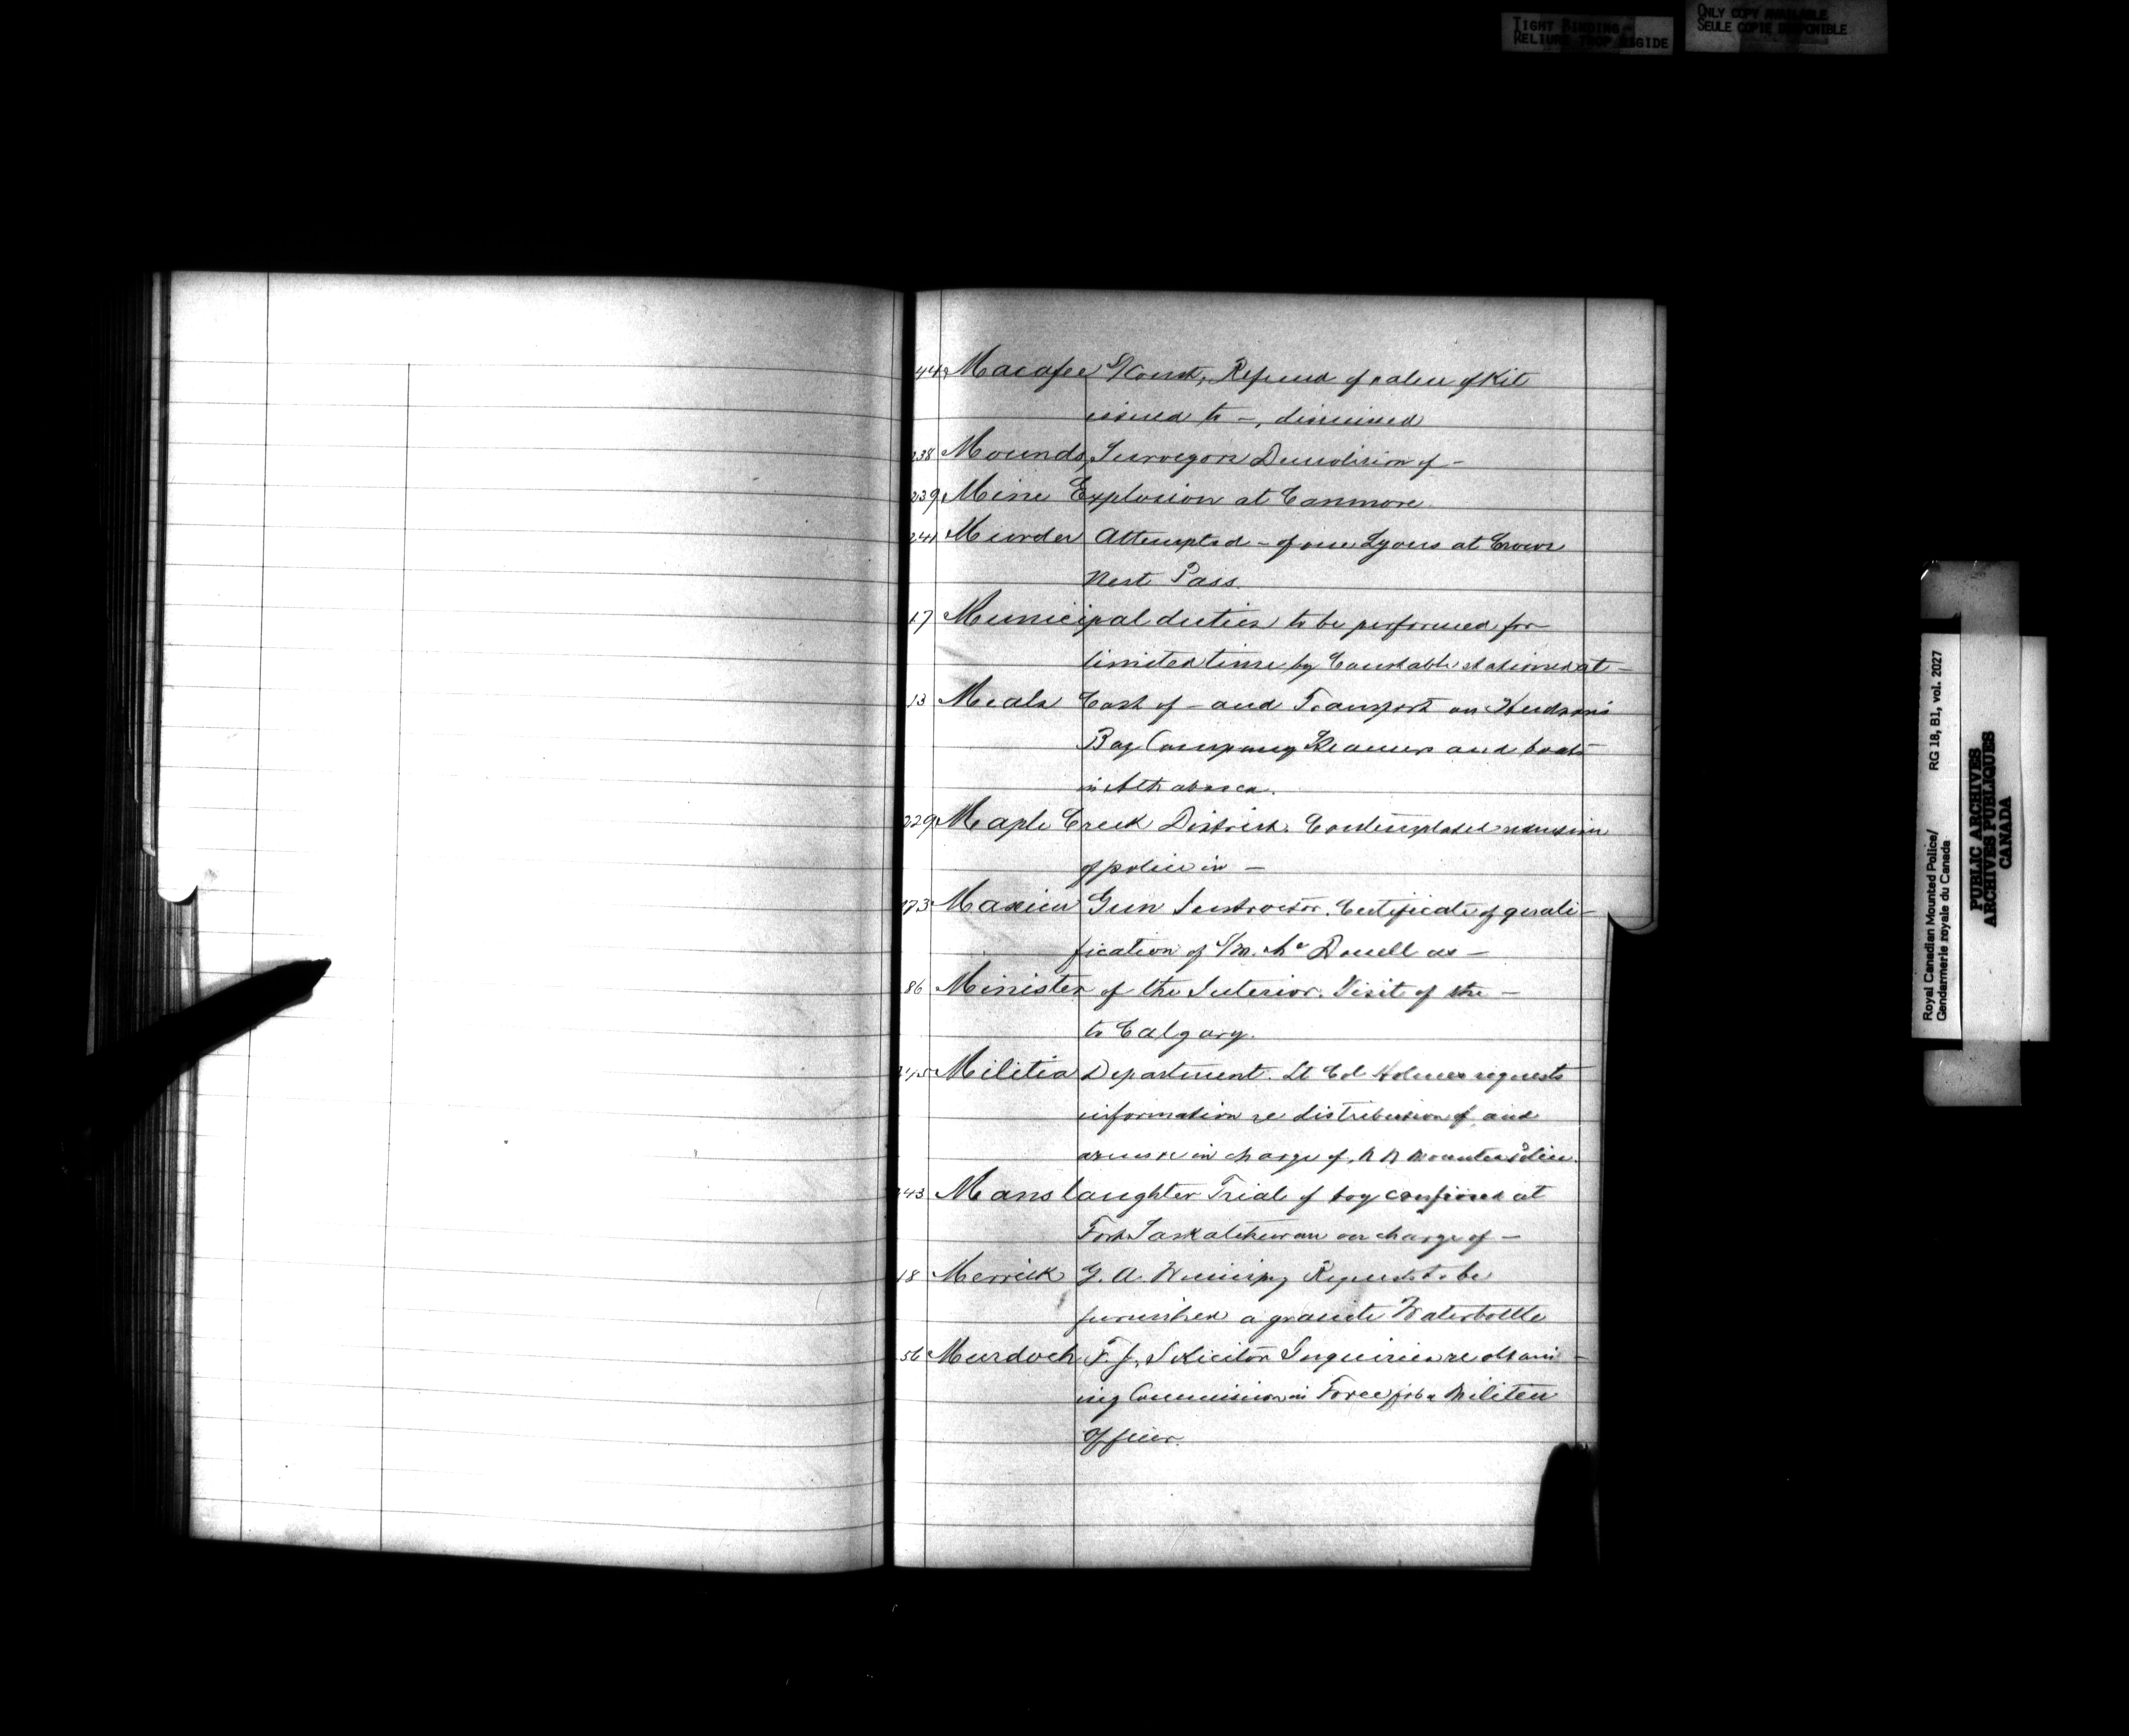 TIGHT BINDING
RELIURE TROP RIGIDE
ONLY COPY AVAILABLE
SEULE COPIE DISPONIBLE
Macafee S/Const, Refund of value of Kit
issued to -, dismissed
238 Mounds, Surveyors Demolition of -
239 Mine Explosion at Canmore.
241 Murder Attempted - of one Lyons at Crows
Nest Pass.
17 Municipal duties to be performed for
limited time by Constable stationed at -
13 Meals Cost of - and Transport on Hudson's
Bay Company Steamers and boats
in Athabasca.
229 Maple Creek District. Contemplated reduction
of police in -
173 Maxim Gun Instructor. Certificate of quali-
fication of S/M. Mc Donell as -
86 Minister of the Interior. Visit of the -
to Calgary.
Militia Department. Lt Col Holmes requests
information re distribution of and
arms &c in charge of, N W Mounted Police.
243 Manslaughter Trial of boy confined at
Fort Saskatchewan on charge of -
18 Merrick G. A. Winnipeg Requests to be
furnished a granite Waterbottle
56 Murdoch F. J, Solicitor Inquiries re obtain-
ing Commission in Force for a Militia
Officer.
Royal Canadian Mounted Police/ RG 18, B1, vol. 2027
Gendarmerie royale du Canada
PUBLIC ARCHIVES
ARCHIVES PUBLIQUES
CANADA